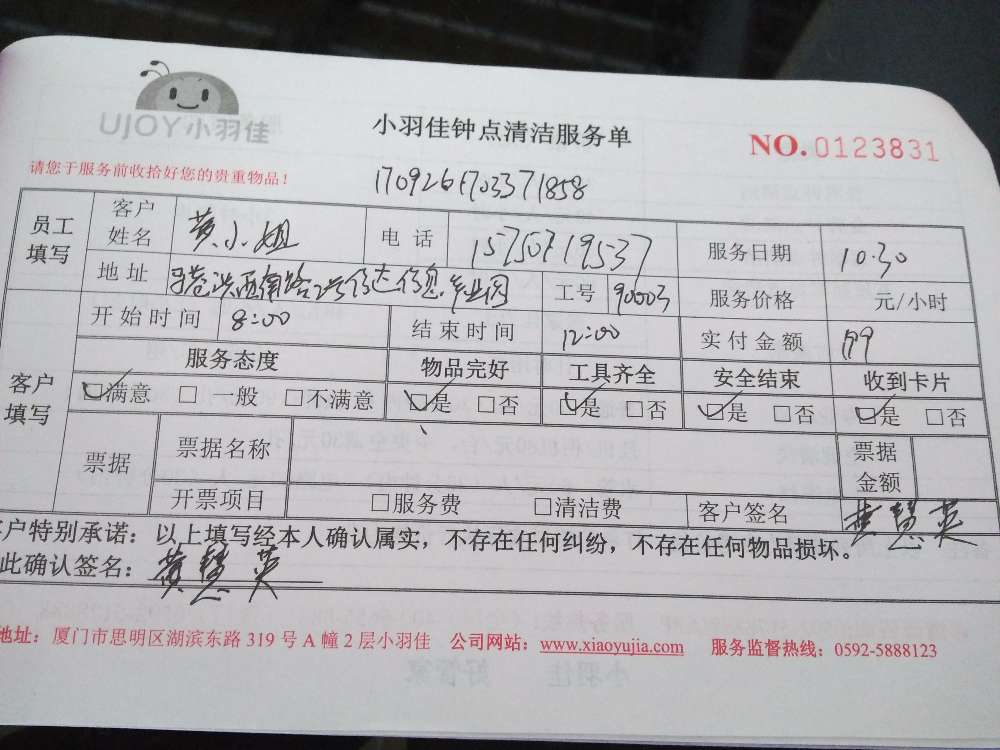 UJOY小羽佳
小羽佳钟点清洁服务单
NO.0123831
请您于服务前收拾好您的贵重物品！
员工填写 客户姓名 黄小姐 电话 服务日期 10.30
地址 工号 90003 服务价格 元/小时
客户填写 开始时间 8:00 结束时间 12:00 实付金额
服务态度 物品完好 工具齐全 安全结束 收到卡片
☑满意 □一般 □不满意 ☑是 □否 ☑是 □否 ☑是 □否 ☑是 □否
票据 票据名称 票据金额
开票项目 □服务费 □清洁费 客户签名 黄慧英
客户特别承诺：以上填写经本人确认属实，不存在任何纠纷，不存在任何物品损坏。
此确认签名：黄慧英
地址：厦门市思明区湖滨东路319号A幢2层小羽佳 公司网站：www.xiaoyujia.com 服务监督热线：0592-5888123